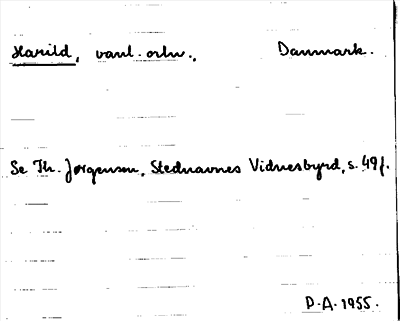 Harild, vanl. ortn., Danmark.
Se Th. Jørgensen, Stednavnes Vidnesbyrd, s. 49f.
P.A. 1955.